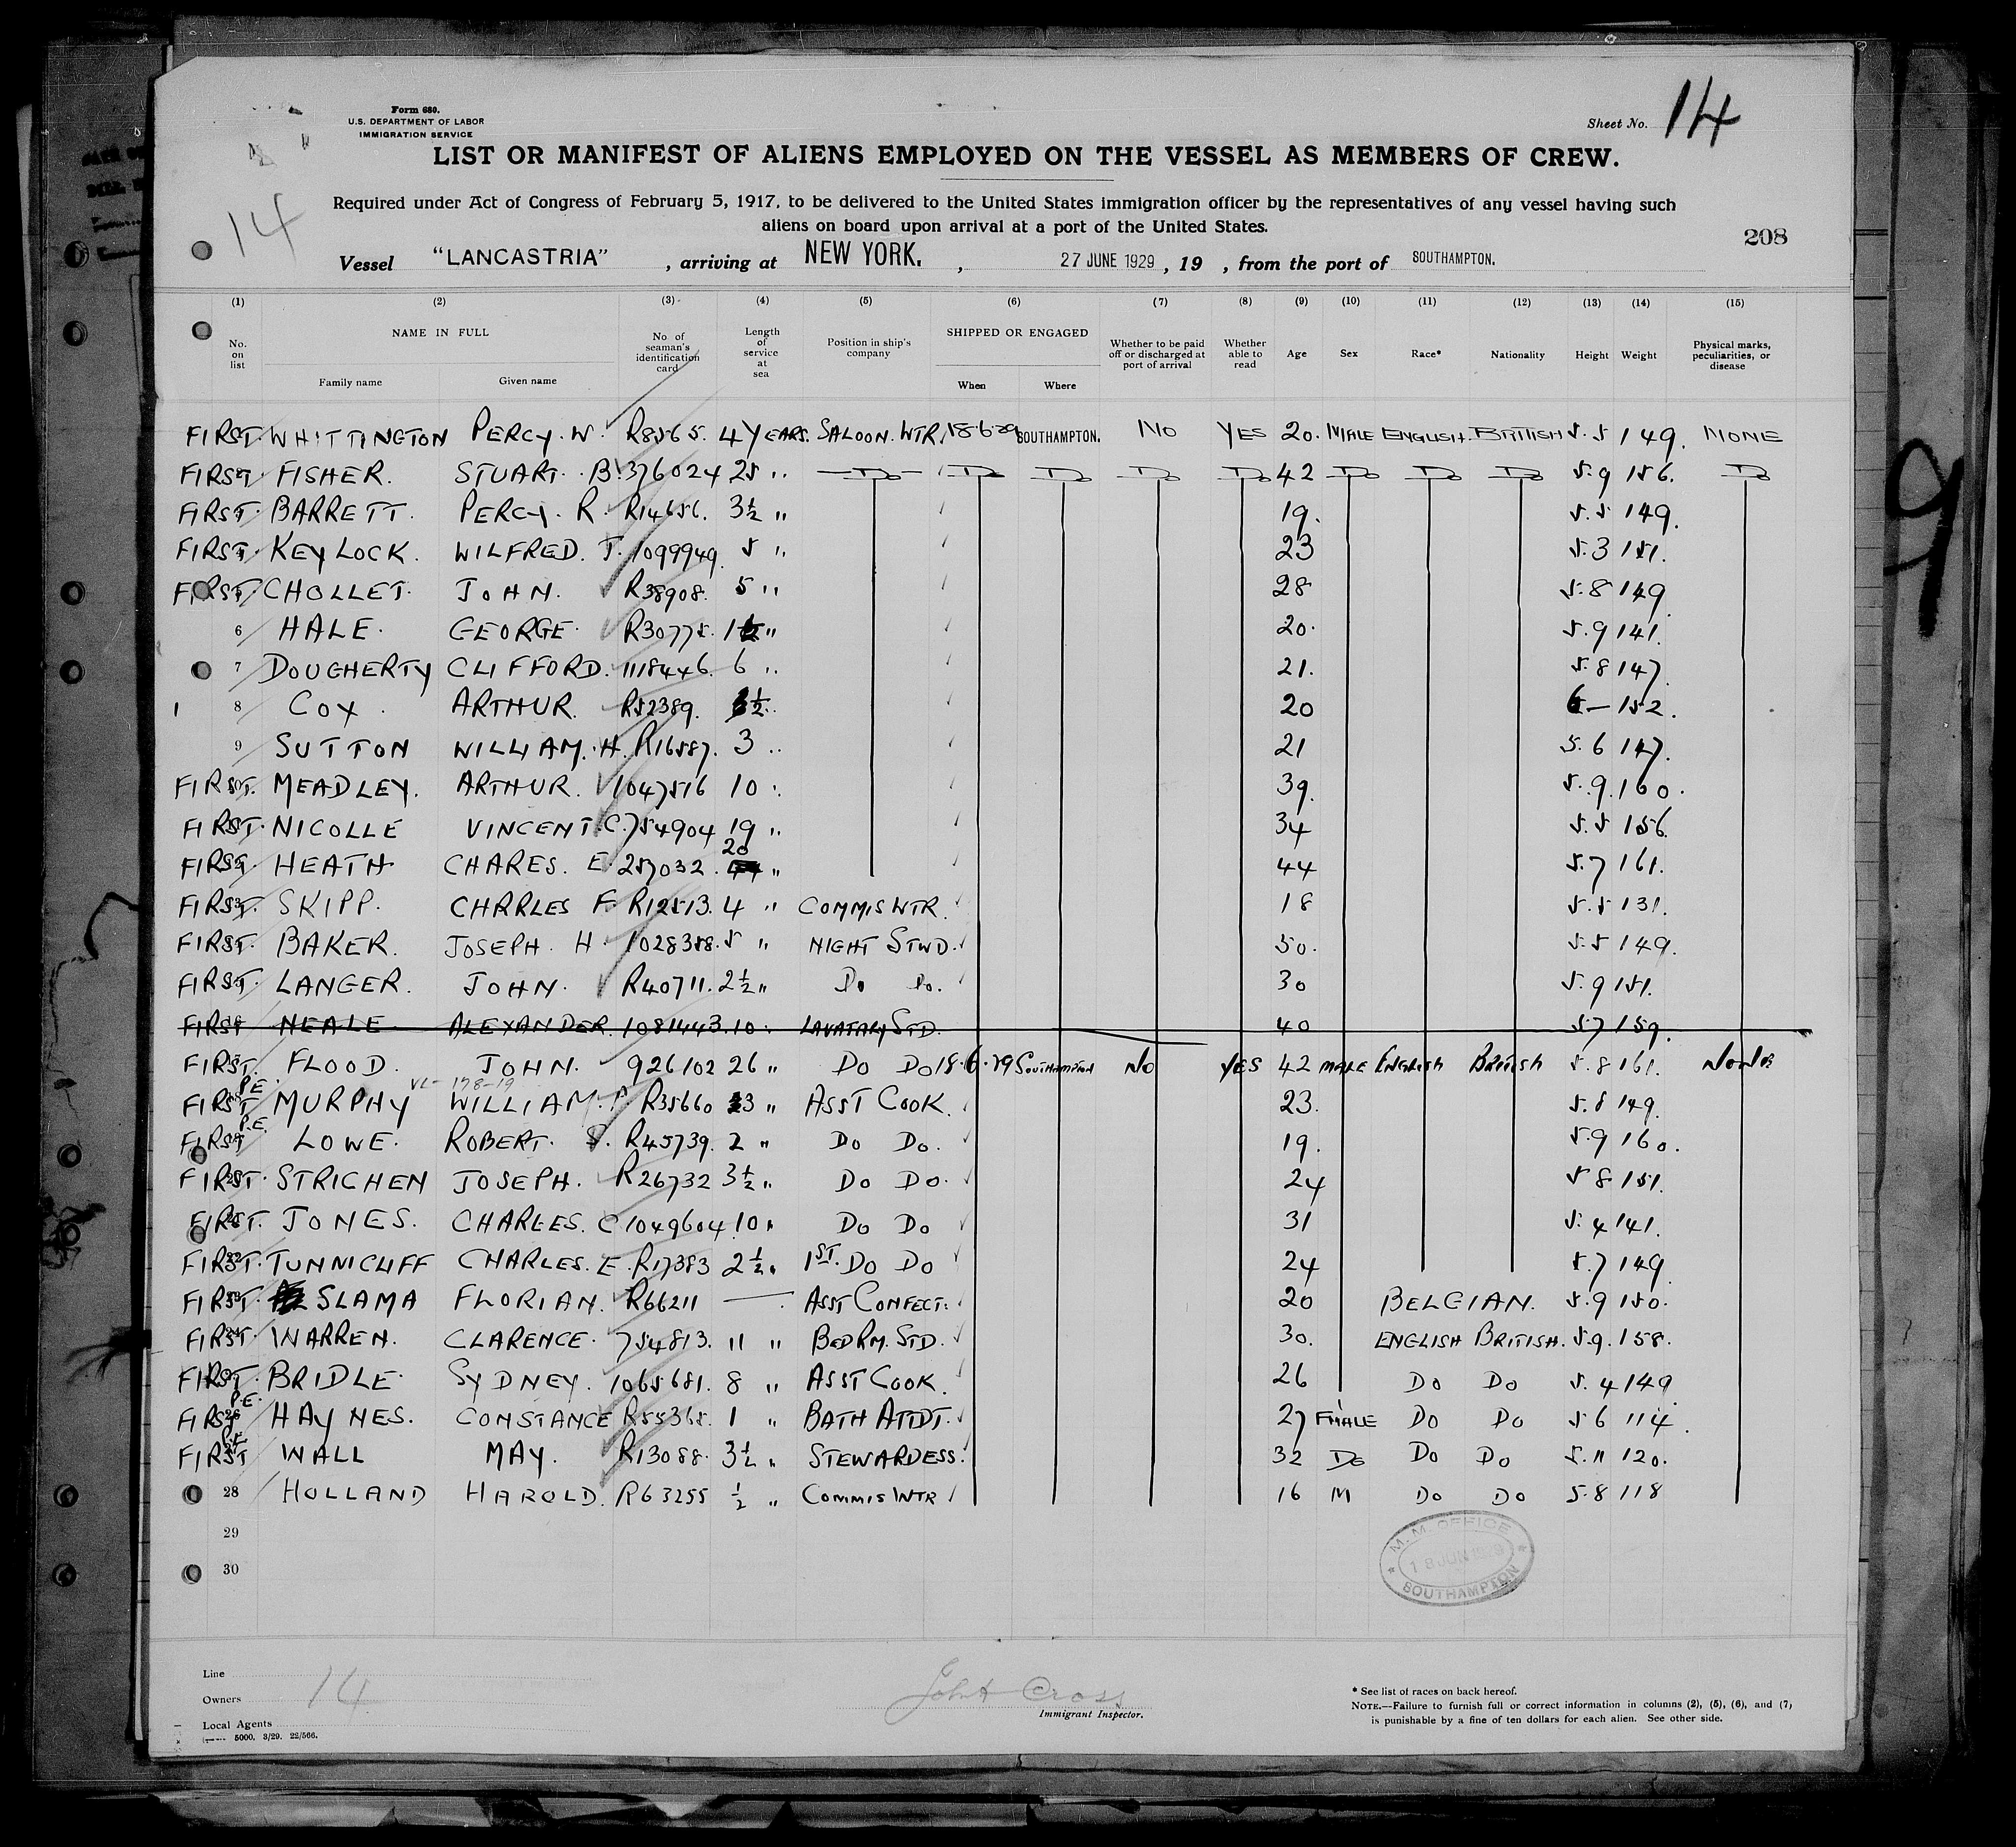 Form 680.
U.S. DEPARTMENT OF LABOR
IMMIGRATION SERVICE
Sheet No. 14
LIST OR MANIFEST OF ALIENS EMPLOYED ON THE VESSEL AS MEMBERS OF CREW.
Required under Act of Congress of February 5, 1917, to be delivered to the United States immigration officer by the representatives of any vessel having such
aliens on board upon arrival at a port of the United States.
14
208
Vessel "LANCASTRIA", arriving at NEW YORK., 27 JUNE 1929, 19 , from the port of SOUTHAMPTON.
(1) (2) (3) (4) (5) (6) (7) (8) (9) (10) (11) (12) (13) (14) (15)
No. on list NAME IN FULL Family name Given name No. of seaman's identification card Length of service at sea Position in ship's company SHIPPED OR ENGAGED When Where Whether to be paid off or discharged at port of arrival Whether able to read Age Sex Race* Nationality Height Weight Physical marks, peculiarities, or disease
FIRST. WHITTINGTON PERCY. W. R8565. 4 YEARS. SALOON. WTR. 18.6.29 SOUTHAMPTON. NO YES 20. MALE ENGLISH. BRITISH 5.5 149. NONE
FIRST FISHER. STUART. B. 376024 25 " Do Do Do Do Do 42 Do Do Do 5.9 156. Do
FIRST. BARRETT. PERCY. R. R14656. 3½ " 19. 5.5 149.
FIRST. KEYLOCK. WILFRED. T. 1099949. 5 " 23 5.3 151.
FIRST CHOLLET. JOHN. R38908. 5 " 28 5.8 149
6 HALE. GEORGE. R30775. 1 " 20. 5.9 141.
7 DOUGHERTY CLIFFORD. 1118446. 6 " 21. 5.8 147.
8 COX. ARTHUR. R52389. ½ 20 6— 152.
9 SUTTON WILLIAM. H. R16587. 3 " 21 5.6 147.
FIRST. MEADLEY. ARTHUR. 1047516 10 " 39. 5.9. 160.
FIRST. NICOLLE VINCENT. C. 754904 19 " 34 5.5 156.
FIRST HEATH CHARES. E. 257032. 20 " 44 5.7 161.
FIRST. SKIPP. CHARLES F. R12513. 4 " COMMIS WTR. 18 5.5 131.
FIRST. BAKER. JOSEPH. H. 1028358. 5 " NIGHT STWD. 50. 5.5 149.
FIRST. LANGER. JOHN. R40711. 2½ " Do Do. 30 5.9 151.
FIRST NEALE ALEXANDER. 1081443. 10 " LAVATARY STD. 40 5.7 159.
FIRST. FLOOD. JOHN. 926102 26 " DO DO 18.6.29 SOUTHAMPTON NO YES 42 MALE ENGLISH BRITISH 5.8 161. NONE
P.E. VL- 178-19
FIRST MURPHY WILLIAM. P. R35660 3 " ASST COOK. 23. 5.8 149.
P.E.
FIRST LOWE. ROBERT. S. R45739. 2 " DO DO. 19. 5.9 160.
FIRST. STRICHEN JOSEPH. R26732 3½ " DO DO. 24 5 8 151.
FIRST. JONES. CHARLES. C 1049604. 10 " DO DO 31 5.4 141.
FIRST. TUNNICLIFF CHARLES. E. R17383 2½ " 1ST. DO DO 24 5.7 149
FIRST. SLAMA FLORIAN. R66211 — ASST CONFECT. 20 BELGIAN. 5.9 150.
FIRST. WARREN. CLARENCE. 754813. 11 " BEDRM. STD. 30. ENGLISH BRITISH. 5.9. 158.
FIRST. BRIDLE. SYDNEY. 1065681. 8 " ASST COOK. 26 DO DO 5.4 149
P.E.
FIRST HAYNES. CONSTANCE R55365. 1 " BATH ATTDT. 27 FMALE DO DO 5 6 114.
P.E.
FIRST WALL MAY. R13088. 3½ " STEWARDESS. 32 DO DO DO 5.11 120.
28 HOLLAND HAROLD. R63255 ½ " COMMIS WTR 16 M DO DO 5.8 118
29
30
M. M. OFFICE
18 JUN 1929
SOUTHAMPTON
Line
Owners 14
Local Agents
5000. 3/29. 22/566.
John Cross
Immigrant Inspector.
* See list of races on back hereof.
NOTE.—Failure to furnish full or correct information in columns (2), (5), (6), and (7)
is punishable by a fine of ten dollars for each alien. See other side.
9